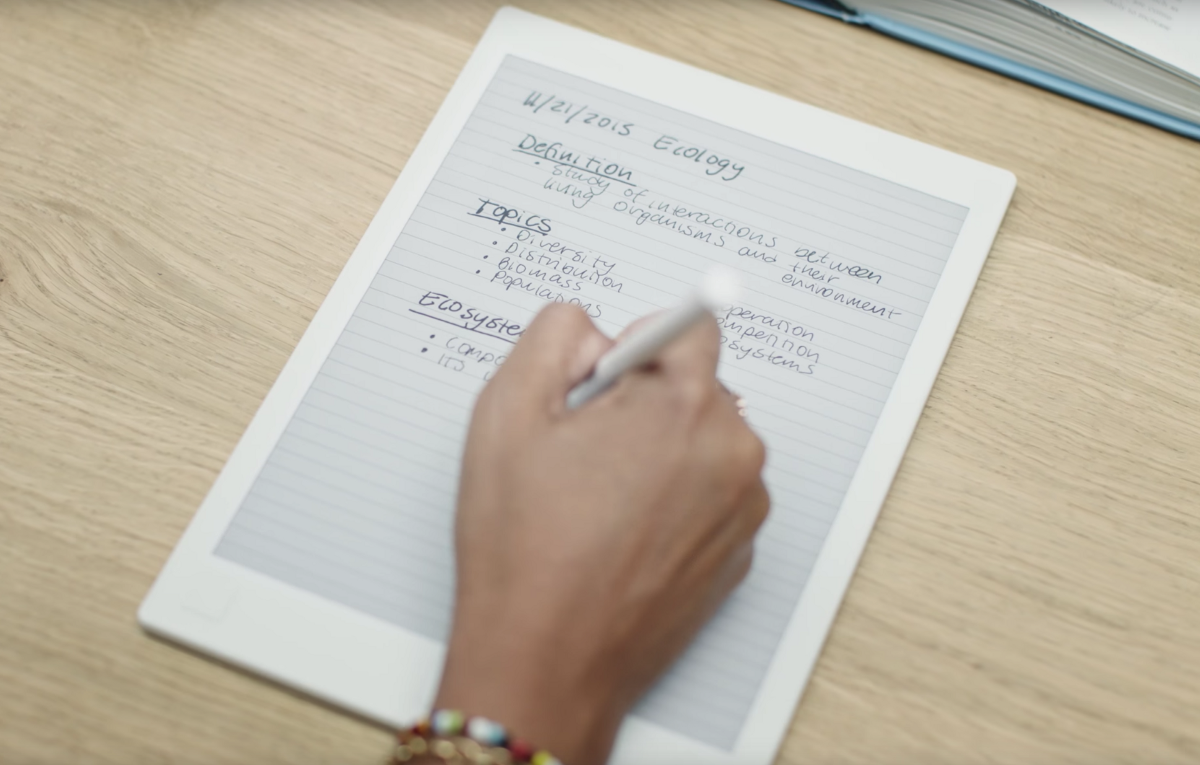 11/21/2015 Ecology
Definition
• Study of interactions between
living organisms and their
environment
Topics
• Diversity
• Distribution
• Biomass
• Populations
peration
mpetition
osystems
Ecosyste
• Compo
• Its